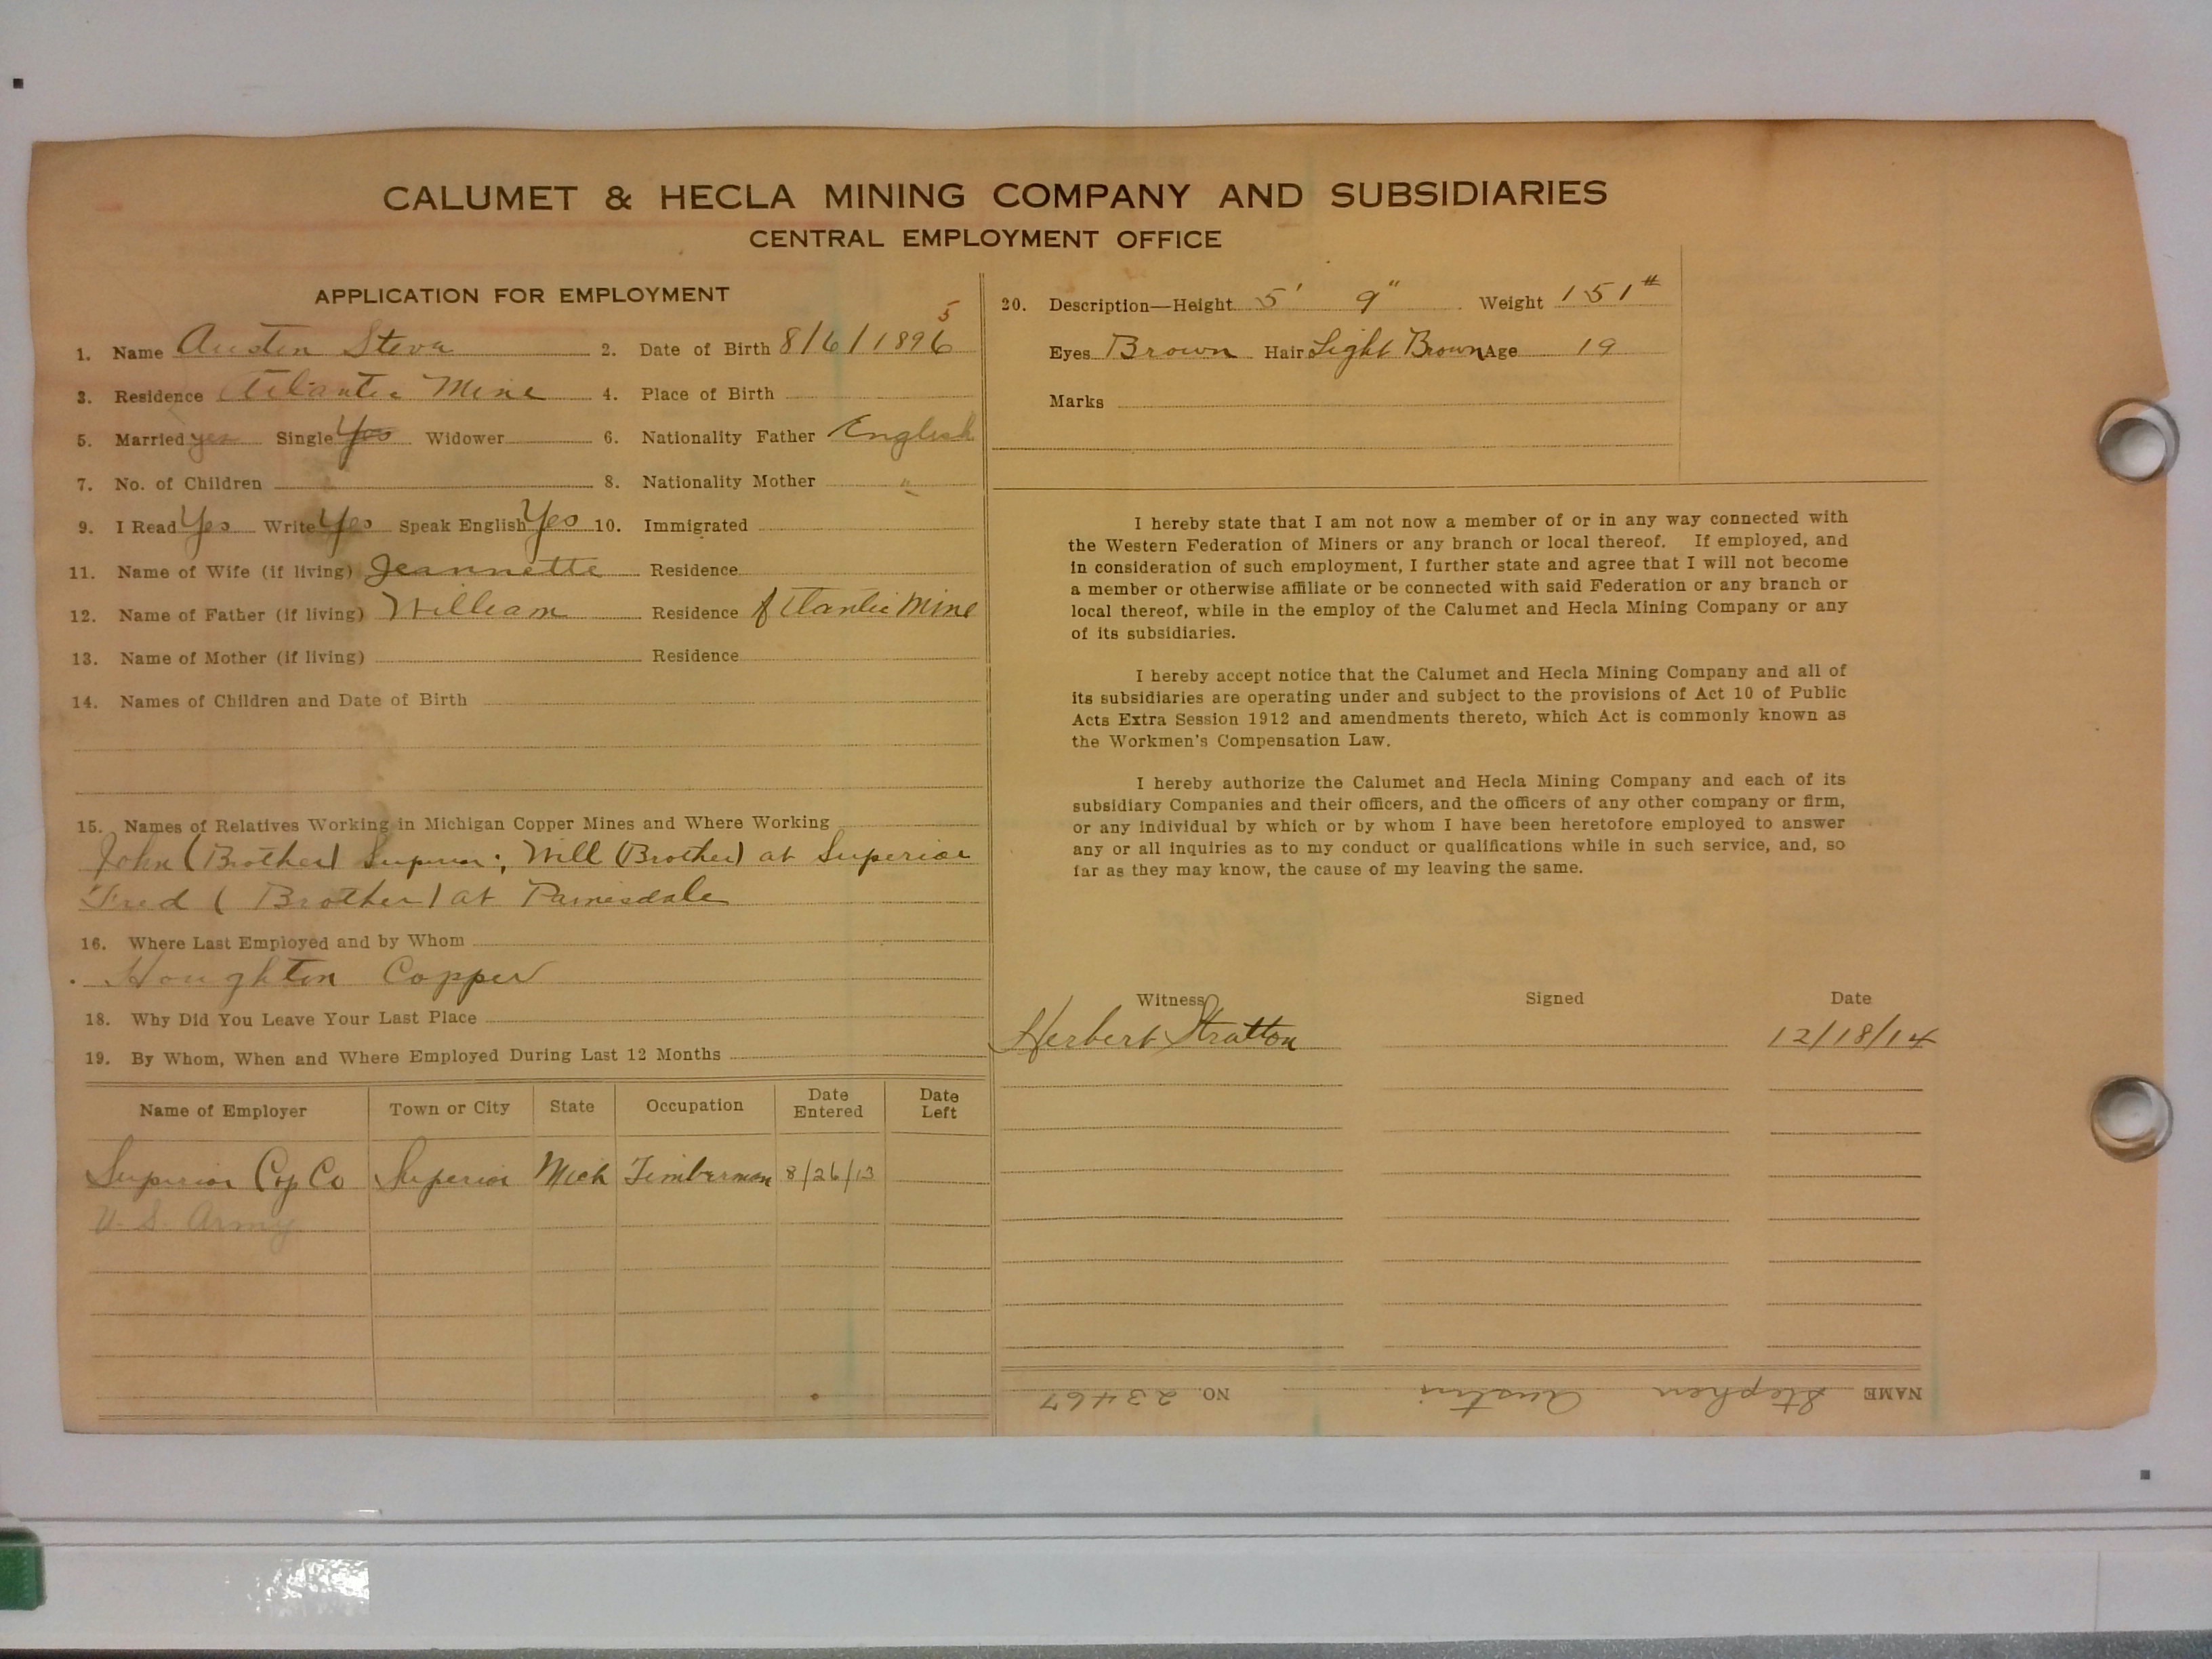 CALUMET & HECLA MINING COMPANY AND SUBSIDIARIES
CENTRAL EMPLOYMENT OFFICE
APPLICATION FOR EMPLOYMENT
5
1. Name Austin Steve 2. Date of Birth 8/6/1896
3. Residence Atlantic Mine 4. Place of Birth
5. Married yes Single Yes Widower 6. Nationality Father English
7. No. of Children 8. Nationality Mother "
9. I Read Yes Write Yes Speak English Yes 10. Immigrated
11. Name of Wife (if living) Jeannette Residence
12. Name of Father (if living) William Residence Atlantic Mine
13. Name of Mother (if living) Residence
14. Names of Children and Date of Birth
15. Names of Relatives Working in Michigan Copper Mines and Where Working
John (Brother) Superior; Will (Brother) at Superior
Fred (Brother) at Painesdale
16. Where Last Employed and by Whom
Houghton Copper
18. Why Did You Leave Your Last Place
19. By Whom, When and Where Employed During Last 12 Months
Name of Employer Town or City State Occupation Date Entered Date Left
Superior Cop Co Superior Mich Timberman 8/26/13
U. S. Army
20. Description—Height 5' 9" Weight 151#
Eyes Brown Hair Light Brown Age 19
Marks
I hereby state that I am not now a member of or in any way connected with
the Western Federation of Miners or any branch or local thereof. If employed, and
in consideration of such employment, I further state and agree that I will not become
a member or otherwise affiliate or be connected with said Federation or any branch or
local thereof, while in the employ of the Calumet and Hecla Mining Company or any
of its subsidiaries.
I hereby accept notice that the Calumet and Hecla Mining Company and all of
its subsidiaries are operating under and subject to the provisions of Act 10 of Public
Acts Extra Session 1912 and amendments thereto, which Act is commonly known as
the Workmen's Compensation Law.
I hereby authorize the Calumet and Hecla Mining Company and each of its
subsidiary Companies and their officers, and the officers of any other company or firm,
or any individual by which or by whom I have been heretofore employed to answer
any or all inquiries as to my conduct or qualifications while in such service, and, so
far as they may know, the cause of my leaving the same.
Witness Signed Date
Herbert Stratton 12/18/14
NAME Stephen Austin NO. 23467